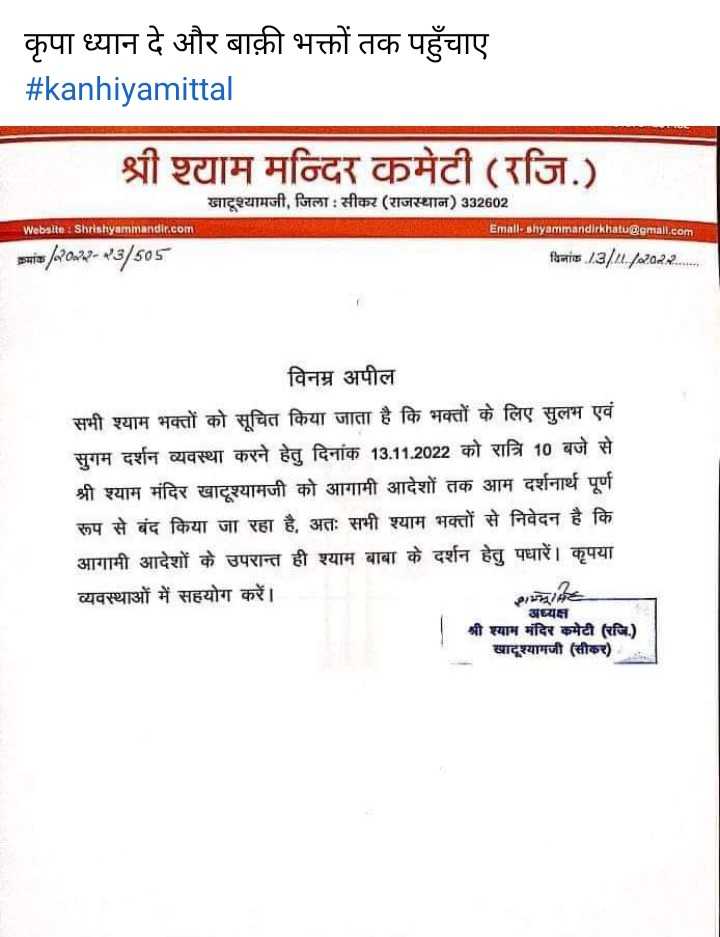 कृपा ध्यान दे और बाक़ी भक्तों तक पहुँचाए
#kanhiyamittal
श्री श्याम मन्दिर कमेटी (रजि.)
खाटूश्यामजी, जिला : सीकर (राजस्थान) 332602
Website : Shrishyammandir.com Email- shyammandirkhatu@gmail.com
क्रमांक /2022-23/505 दिनांक 13/11/2022........
विनम्र अपील
सभी श्याम भक्तों को सूचित किया जाता है कि भक्तों के लिए सुलभ एवं
सुगम दर्शन व्यवस्था करने हेतु दिनांक 13.11.2022 को रात्रि 10 बजे से
श्री श्याम मंदिर खाटूश्यामजी को आगामी आदेशों तक आम दर्शनार्थ पूर्ण
रूप से बंद किया जा रहा है, अतः सभी श्याम भक्तों से निवेदन है कि
आगामी आदेशों के उपरान्त ही श्याम बाबा के दर्शन हेतु पधारें। कृपया
व्यवस्थाओं में सहयोग करें।
अध्यक्ष
श्री श्याम मंदिर कमेटी (रजि.)
खाटूश्यामजी (सीकर)